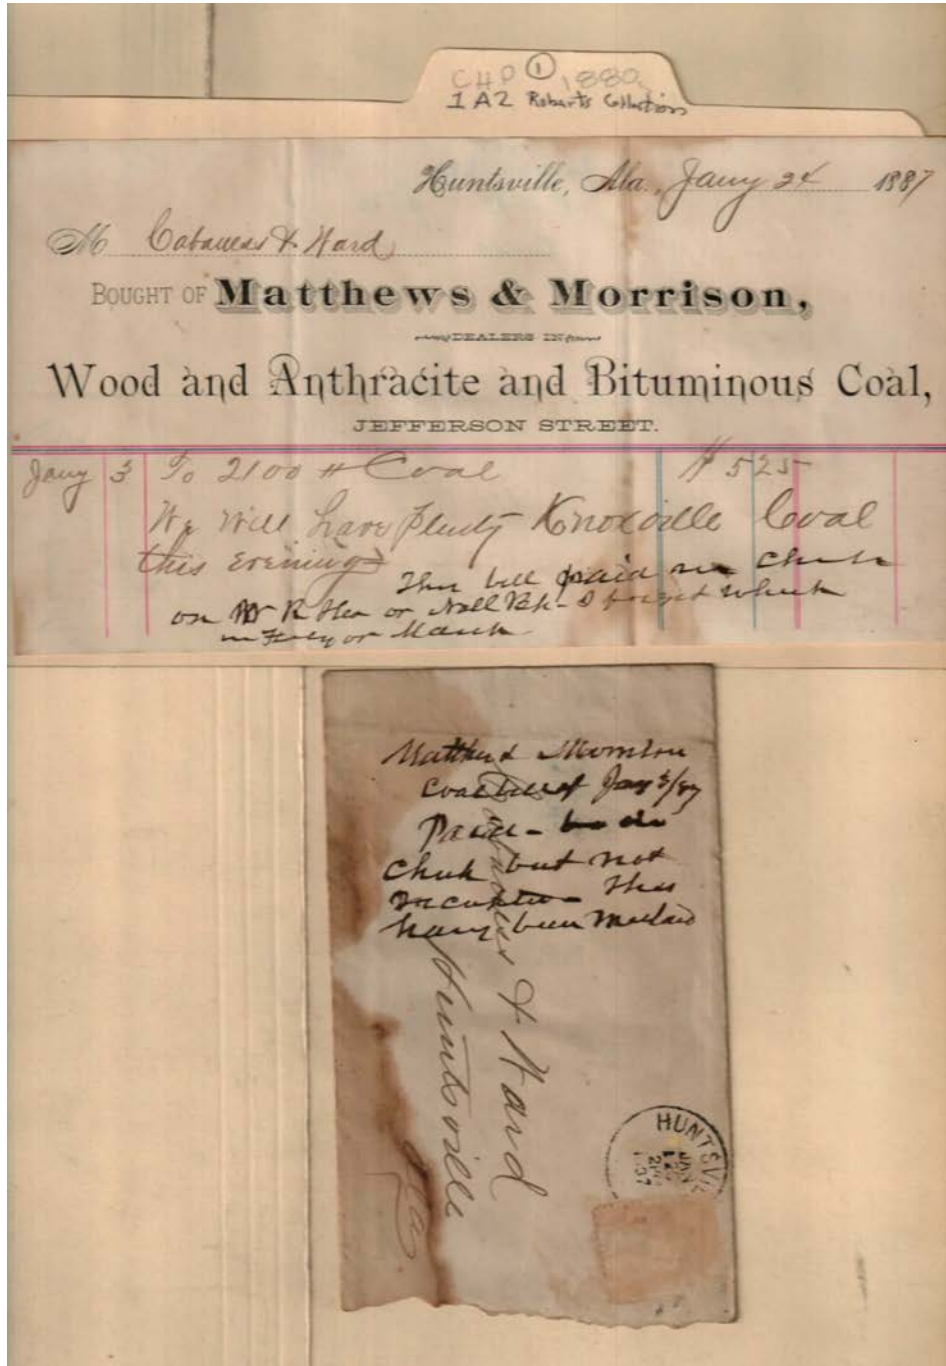 CHP ① 1880s
1A2 Roberts Collection
Huntsville, Ala., Jany 24 1887
M Cabaness & Ward
BOUGHT OF Matthews & Morrison,
DEALERS IN
Wood and Anthracite and Bituminous Coal,
JEFFERSON STREET.
Jany 3 To 2100 # Coal $ 5 25
We Will have plenty Knoxville Coal
this evening
This bill paid in check
on W R or Natl Bk - I forget which
in Feby or March
Matthews & Morrison
Coal bill of Jany 3/87
Paid -
Check but not
this
having been mislaid
Cabaness & Ward
Huntsville
Ala
HUNTSVI
JAN
2PM